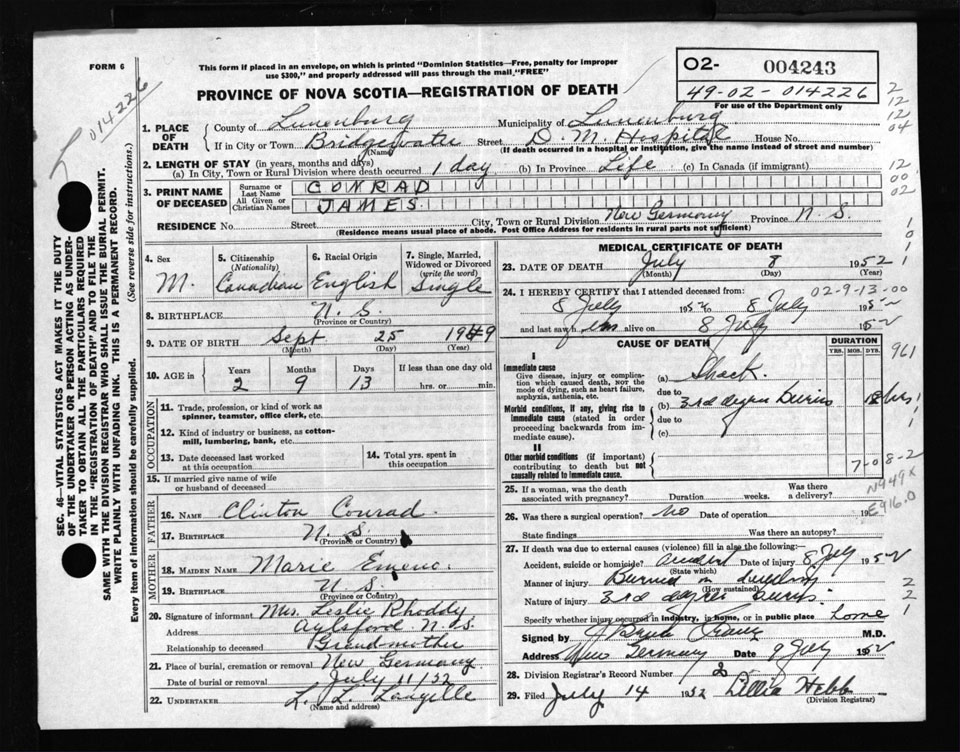 FORM 6
This form if placed in an envelope, on which is printed "Dominion Statistics—Free, penalty for improper
use $300," and properly addressed will pass through the mail "FREE"
PROVINCE OF NOVA SCOTIA—REGISTRATION OF DEATH
02- 004243
49-02-014226
For use of the Department only
014226
2
12
12
04
12
00
02
1. PLACE OF DEATH
County of Lunenburg Municipality of Lunenburg
If in City or Town Bridgewater Street D. M. Hospital House No.
(Name) (If death occurred in a hospital or institution, give the name instead of street and number)
2. LENGTH OF STAY (in years, months and days)
(a) In City, Town or Rural Division where death occurred 1 day (b) In Province Life (c) In Canada (if immigrant)
3. PRINT NAME OF DECEASED
Surname or Last Name CONRAD
All Given or Christian Names JAMES
RESIDENCE No. Street City, Town or Rural Division New Germany Province N. S.
(Residence means usual place of abode. Post Office Address for residents in rural parts not sufficient)
SEC. 46—VITAL STATISTICS ACT MAKES IT THE DUTY
OF THE UNDERTAKER OR PERSON ACTING AS UNDER-
TAKER TO OBTAIN ALL THE PARTICULARS REQUIRED
IN THE "REGISTRATION OF DEATH" AND TO FILE THE
SAME WITH THE DIVISION REGISTRAR WHO SHALL ISSUE THE BURIAL PERMIT.
WRITE PLAINLY WITH UNFADING INK. THIS IS A PERMANENT RECORD.
Every item of information should be carefully supplied. (See reverse side for instructions.)
4. Sex
M.
5. Citizenship (Nationality)
Canadian
6. Racial Origin
English
7. Single, Married, Widowed or Divorced (write the word)
Single
8. BIRTHPLACE N. S.
(Province or Country)
9. DATE OF BIRTH Sept 25 1949
(Month) (Day) (Year)
10. AGE in Years Months Days If less than one day old
2 9 13 hrs. or min.
OCCUPATION
11. Trade, profession, or kind of work as spinner, teamster, office clerk, etc.
12. Kind of industry or business, as cotton-mill, lumbering, bank, etc.
13. Date deceased last worked at this occupation
14. Total yrs. spent in this occupation
15. If married give name of wife or husband of deceased
FATHER
16. NAME Clinton Conrad
17. BIRTHPLACE N. S.
(Province or Country)
MOTHER
18. MAIDEN NAME Marie Emeno.
19. BIRTHPLACE N. S.
(Province or Country)
20. Signature of informant Mrs. Leslie Rhoddy
Address Aylsford N. S.
Relationship to deceased Grandmother
21. Place of burial, cremation or removal New Germany
Date of burial or removal July 11/52
22. UNDERTAKER L. L. Langille
(Name and address)
MEDICAL CERTIFICATE OF DEATH
23. DATE OF DEATH July 8 1952
(Month) (Day) (Year)
24. I HEREBY CERTIFY that I attended deceased from: 02-9-13-00
8 July 1952 8 July 1952
and last saw him alive on 8 July 1952
CAUSE OF DEATH
DURATION
YRS. MOS. DYS.
961
I
Immediate cause
Give disease, injury or complication which caused death, not the mode of dying, such as heart failure, asphyxia, asthenia, etc.
(a) Shock.
due to
Morbid conditions, if any, giving rise to immediate cause (stated in order proceeding backwards from immediate cause).
(b) 3rd degree burns hrs
due to
(c)
II
Other morbid conditions (if important) contributing to death but not causally related to immediate cause.
7-08-2
N949X
E916.0
25. If a woman, was the death associated with pregnancy? Duration weeks. Was there a delivery?
26. Was there a surgical operation? No Date of operation 19
State findings Was there an autopsy?
27. If death was due to external causes (violence) fill in also the following:—
Accident, suicide or homicide? accident Date of injury 8 July 1952
(State which)
Manner of injury Burned in
(How sustained)
Nature of injury 3rd degree burns.
Specify whether injury occurred in industry, in home, or in public place home
Signed by M.D.
Address New Germany Date 9 July 1952
28. Division Registrar's Record Number
29. Filed July 14 1952 Lillia Hebb
(Division Registrar)